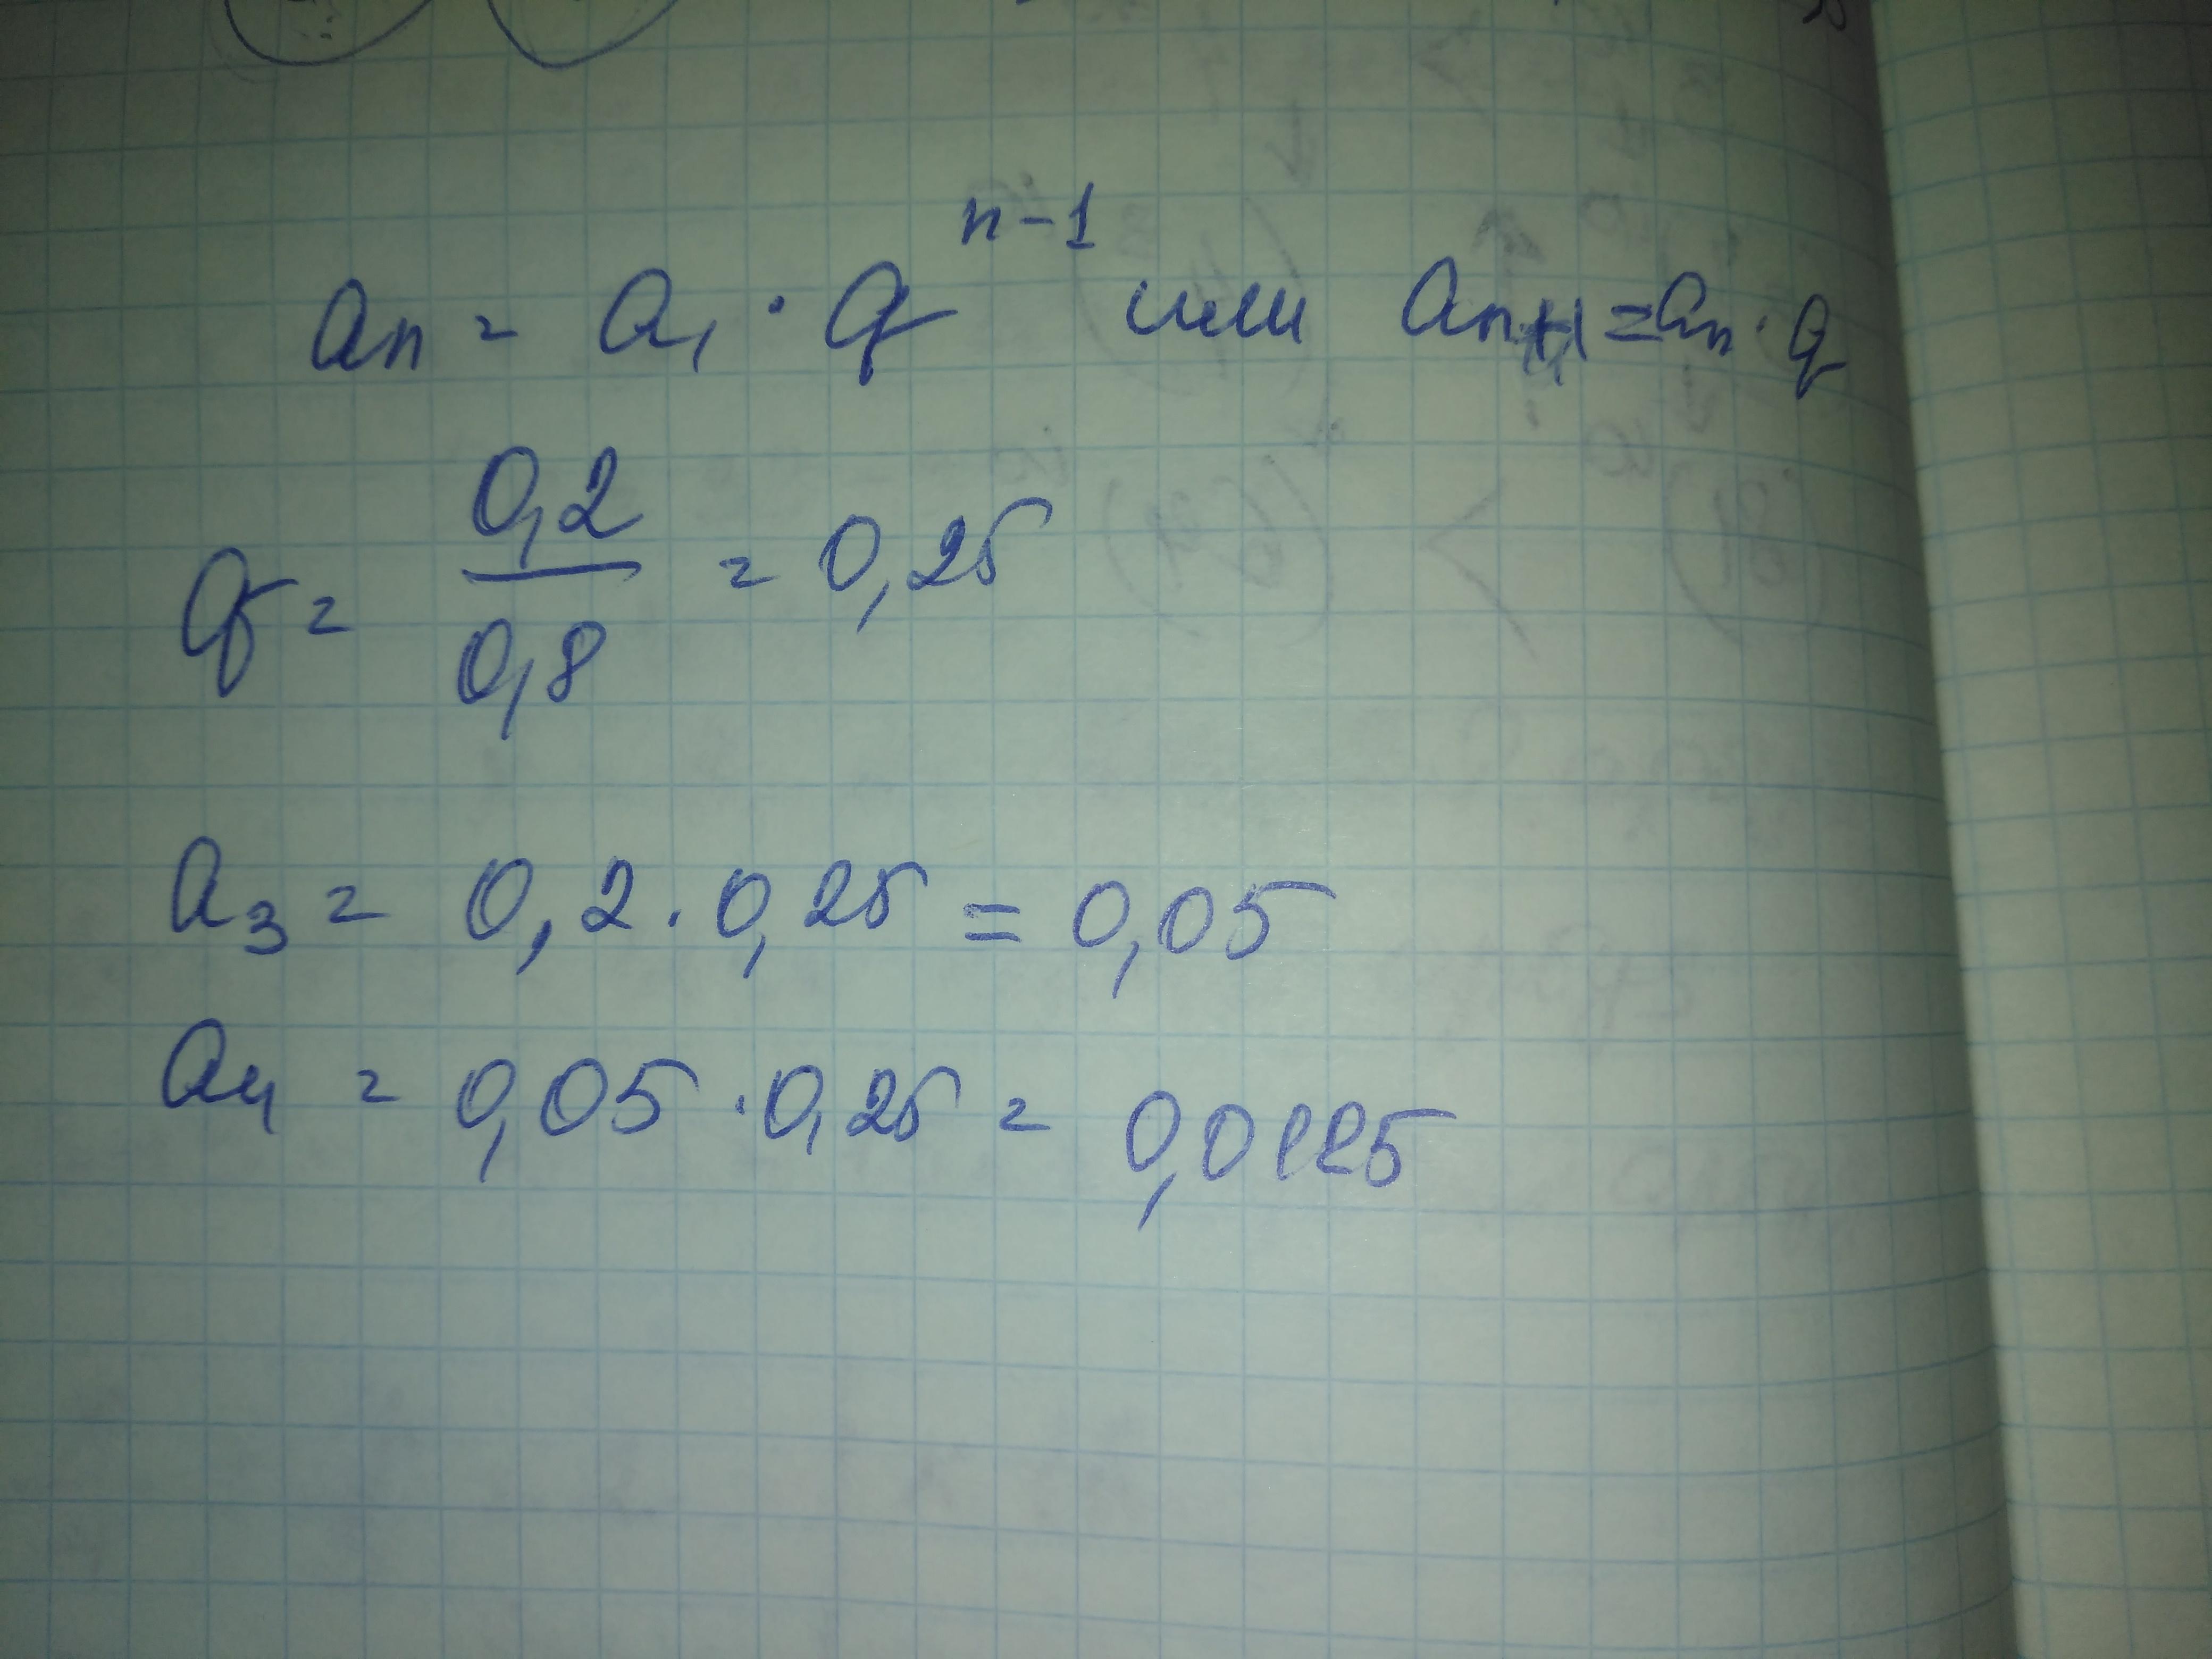 aₙ = a₁ · qⁿ⁻¹ или aₙ₊₁ = aₙ · q
q = 0,2 / 0,8 = 0,25
a₃ = 0,2 · 0,25 = 0,05
a₄ = 0,05 · 0,25 = 0,0125